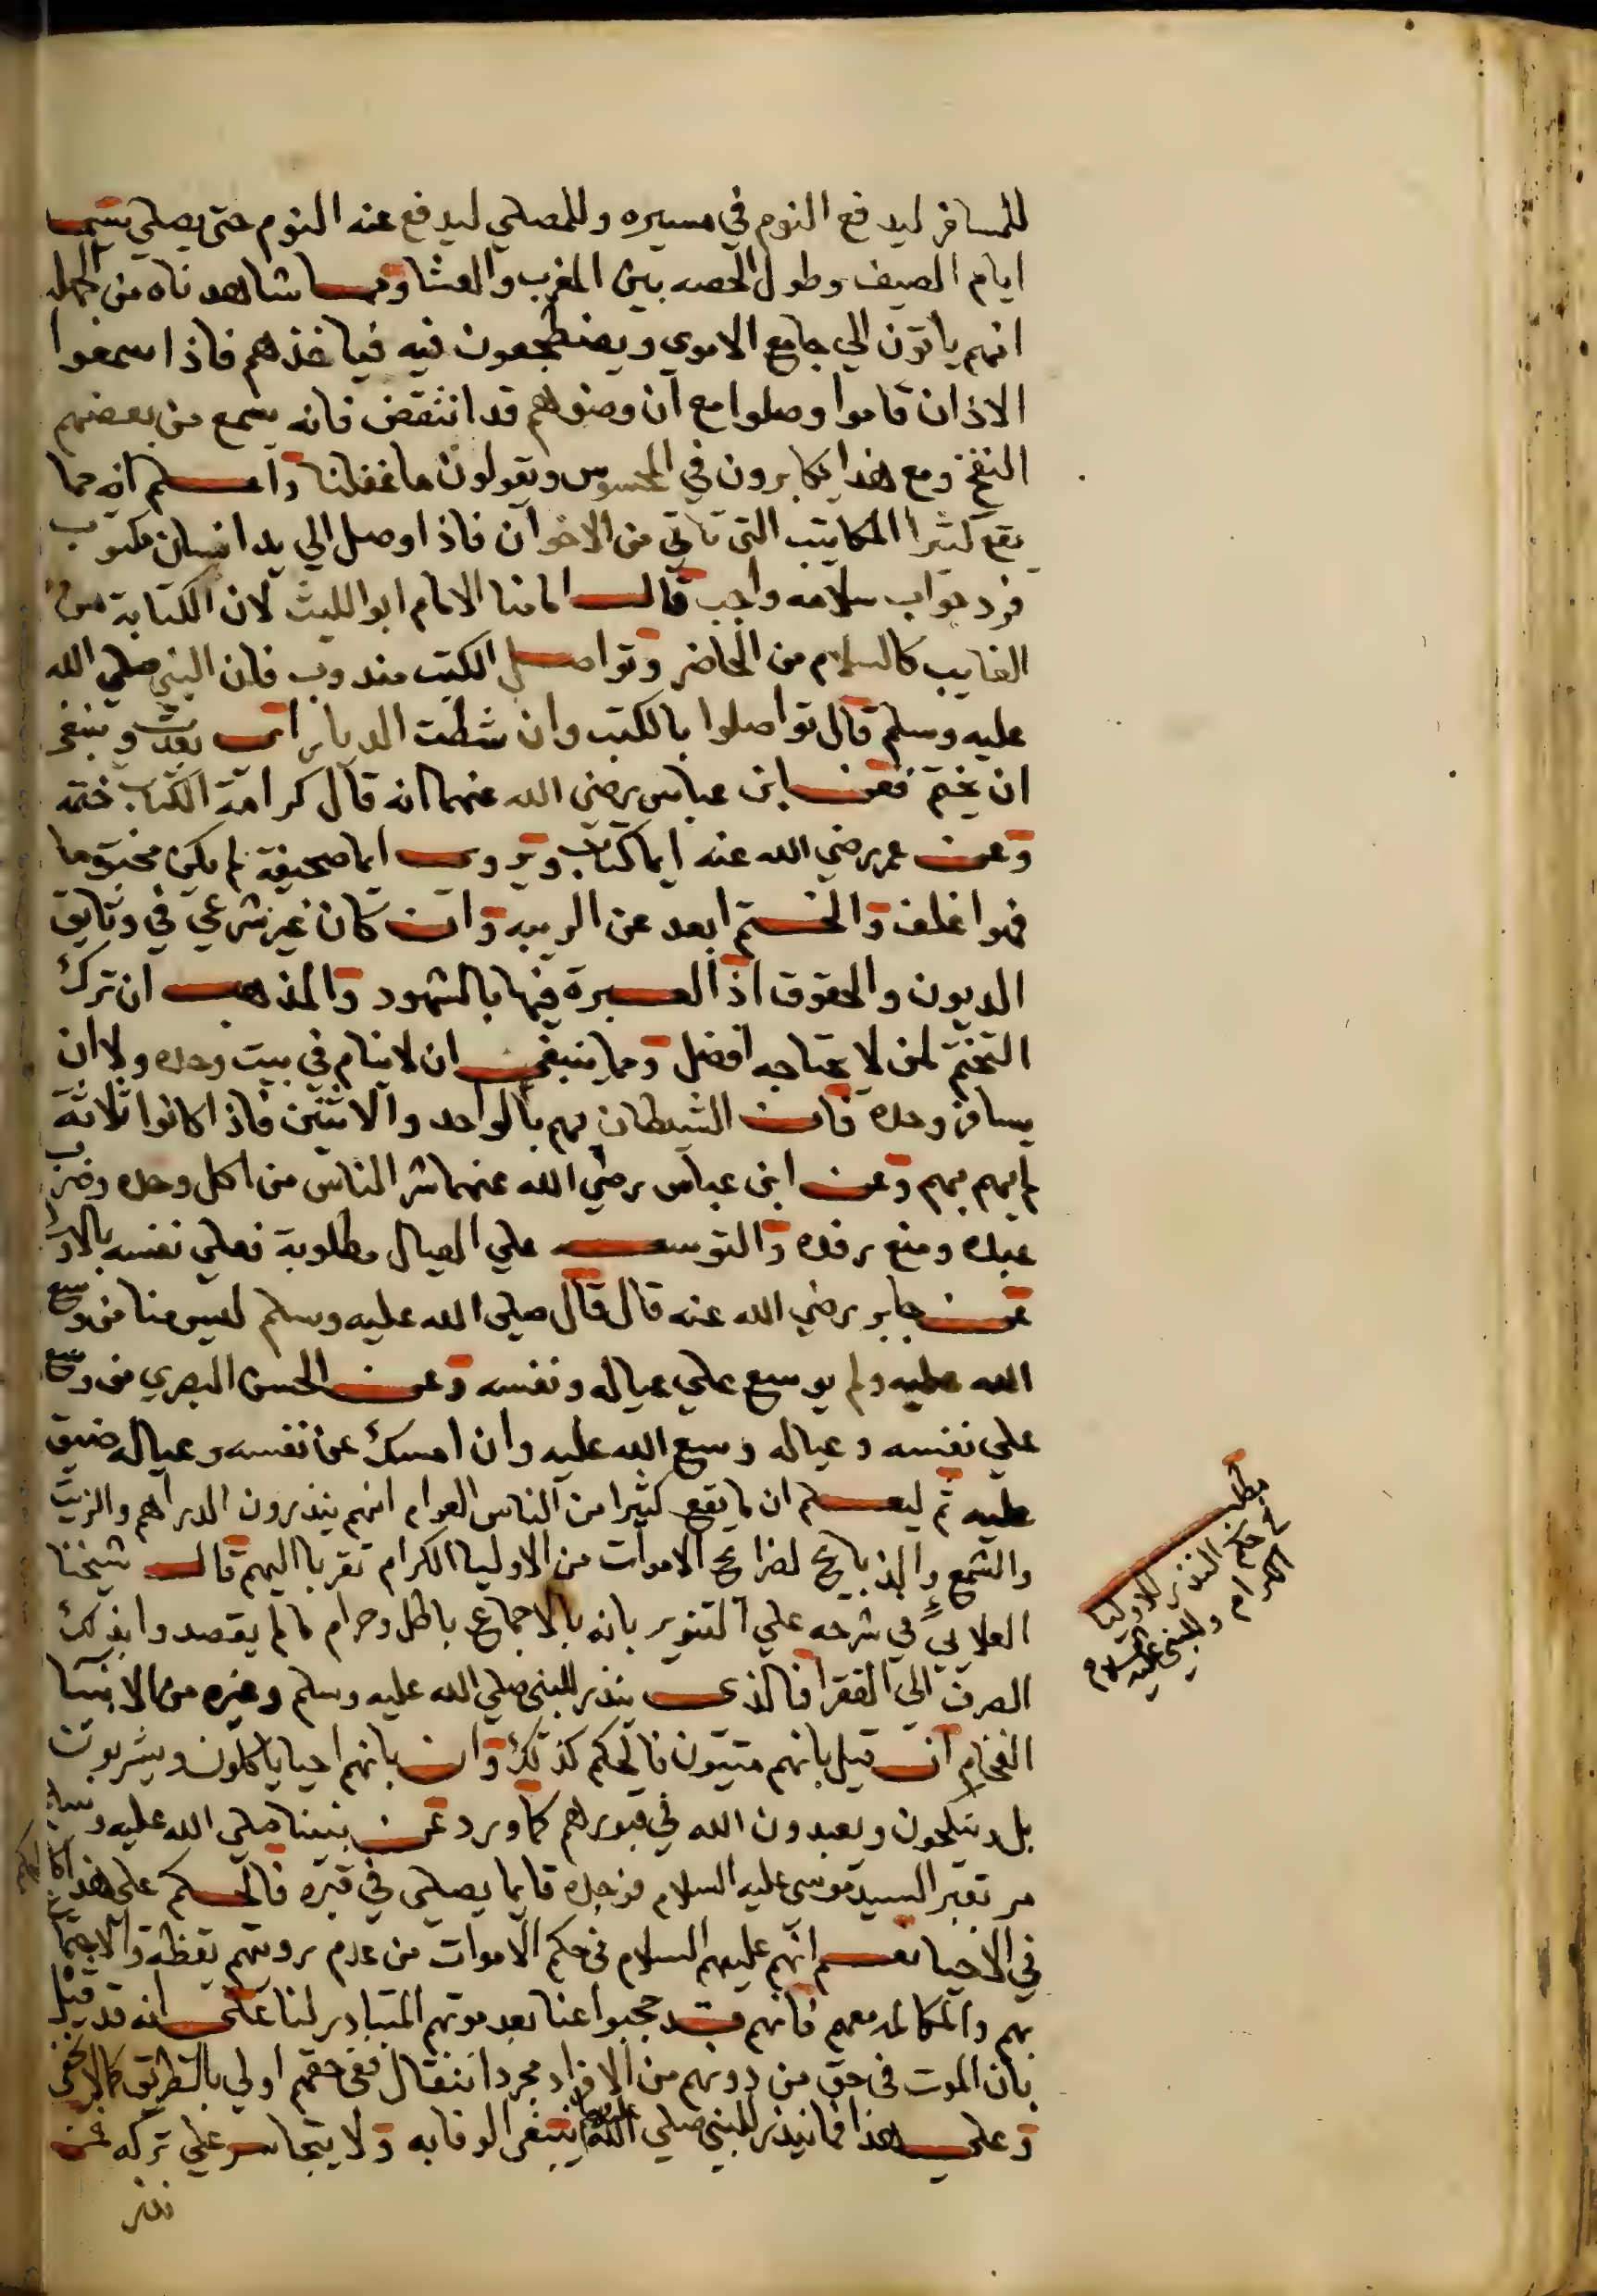 للمسافر ليدفع النوم في مسيره وللمصلي ليدفع عنه النوم حتى يصلي سيما
ايام الصيف وطول الحصه بين المغرب والعشا ومما شاهدناه من الجهله
انهم ياتون الي جامع الاموي ويضطجعون فيه فياخذهم فاذا سمعوا
الاذان قاموا وصلوا مع ان وضوهم قد انتقض فانه يسمع من بعضهم
النفخ ومع هذا يكابرون في المحسوس ويقولون ما غفلنا واعلم انه مما
يقع كثيرا المكاتيب التي تاتي من الاخوان فاذا وصل الي يد انسان مكتوب
فرد جواب سلامه واجب قال امامنا الامام ابو الليث لان الكتابة من
الغايب كالسلام من الحاضر وتواصل الكتب مندوب فان النبي صلي الله
عليه وسلم قال تواصلوا بالكتب وان شطت الديار اي بعدت وينبغي
ان يختم فعن ابن عباس رضي الله عنهما انه قال كرامة الكتاب ختمه
وعن عمر رضي الله عنه ايما كتاب ويروي ايما صحيفة لم يكن مختوما
فهو اغلف والختم ابعد عن الريبه وان كان غير شرعي في وثايق
الديون والحقوق اذ العبرة فيها بالشهود والمذهب ان ترك
التختم لمن لا يحتاجه افضل ومما ينبغي ان لا ينام في بيت وحده ولا ان
يسافر وحده فان الشيطان يهم بالواحد والاثنين فاذا كانوا ثلاثة
لم يهم بهم وعن ابن عباس رضي الله عنهما شر الناس من اكل وحده وضرب
عبده ومنع رفده والتوسعه علي العيال مطلوبة فعلي نفسه بالاولى
عن جابر رضي الله عنه قال قال صلى الله عليه وسلم ليس منا من وسع
الله عليه ولم يوسع علي عياله ونفسه وعن الحسن البصري من وسع
علي نفسه وعياله وسع الله عليه وان امسك عن نفسه وعياله ضيق
عليه ثم ليعلم ان ما يقع كثيرا من الناس العوام انهم ينذرون الدراهم والزيت
والشمع والذبايح لضرايح الاموات من الاوليا الكرام تقربا اليهم قال شيخنا
العلايي في شرحه علي التنوير بانه بالاجماع باطل وحرام ما لم يقصدوا بذلك
الصرف الى الفقرا فالذي ينذر للنبي صلي الله عليه وسلم وغيره من الانبيا
الفخام ان قيل بانهم ميتون فالحكم كذلك وان بانهم احيا ياكلون ويشربون
بل وينكحون ويعبدون الله في قبورهم كما ورد عن نبينا صلي الله عليه وسلم
مر بقبر السيد موسى عليه السلام فوجده قايما يصلي في قبره فالحكم على هذا كالحكم
في الاحيا نعم انهم عليهم السلام في حكم الاموات من عدم رويتهم يقظة والاجتماع
بهم والمكالمه معهم فانهم قد حجبوا عنا بعد موتهم المتبادر لنا على انه قد قيل
بان الموت في حق من دونهم من الافراد مجرد انتقال ففي حقهم اولي بالطريق كما لا يخفى
وعلي هذا فما نيذر للنبي صلي الله عليه وسلم ينبغي الوفا به ولا يتجاسر علي تركه فمن
نذر
مطلب
في حكم النذر للاوليا
الكرام والنبي عليه السلام